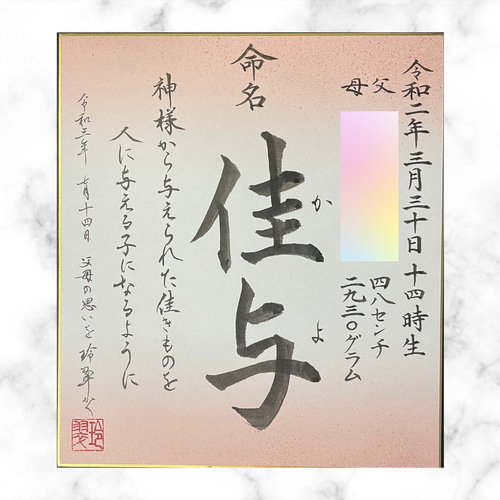 令和二年三月三十日十四時生
父
母
四八センチ
二九三〇グラム
命名
佳与
かよ
神様から与えられた佳きものを
人に与える子になるように
令和三年 七月十四日 父母の思いを 玲翠書く